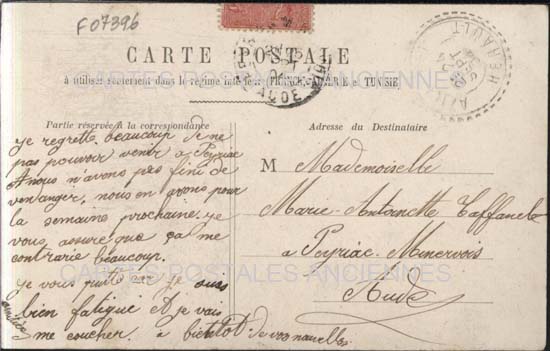 F07396
CARTE POSTALE
à utiliser seulement dans le régime intérieur (FRANCE, ALGÉRIE & TUNISIE
Partie réservée à la correspondance
Adresse du Destinataire
CARTES POSTALES ANCIENNES
HERAULT
AUDE
je regrette beaucoup de ne
pas pouvoir venir à Peyriac
nous n'avons pas fini de
vendanger, nous en avons pour
la semaine prochaine. je
vous assure que ça me
contrarie beaucoup.
je vous quitte car je suis
bien fatigué et je vais
me coucher. à bientôt de vos nouvelles
M Mademoiselle
Marie-Antoinette
à Peyriac-Minervois
Aude
CARTES POSTALES ANCIENNES